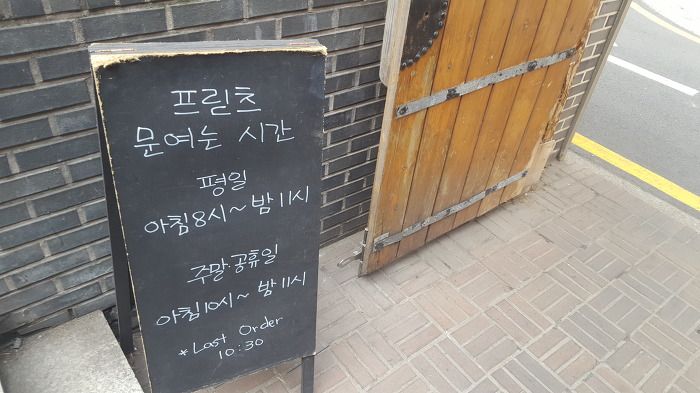 프릳츠
문여는 시간
평일
아침8시~밤11시
주말·공휴일
아침10시~밤11시
*Last Order
10:30